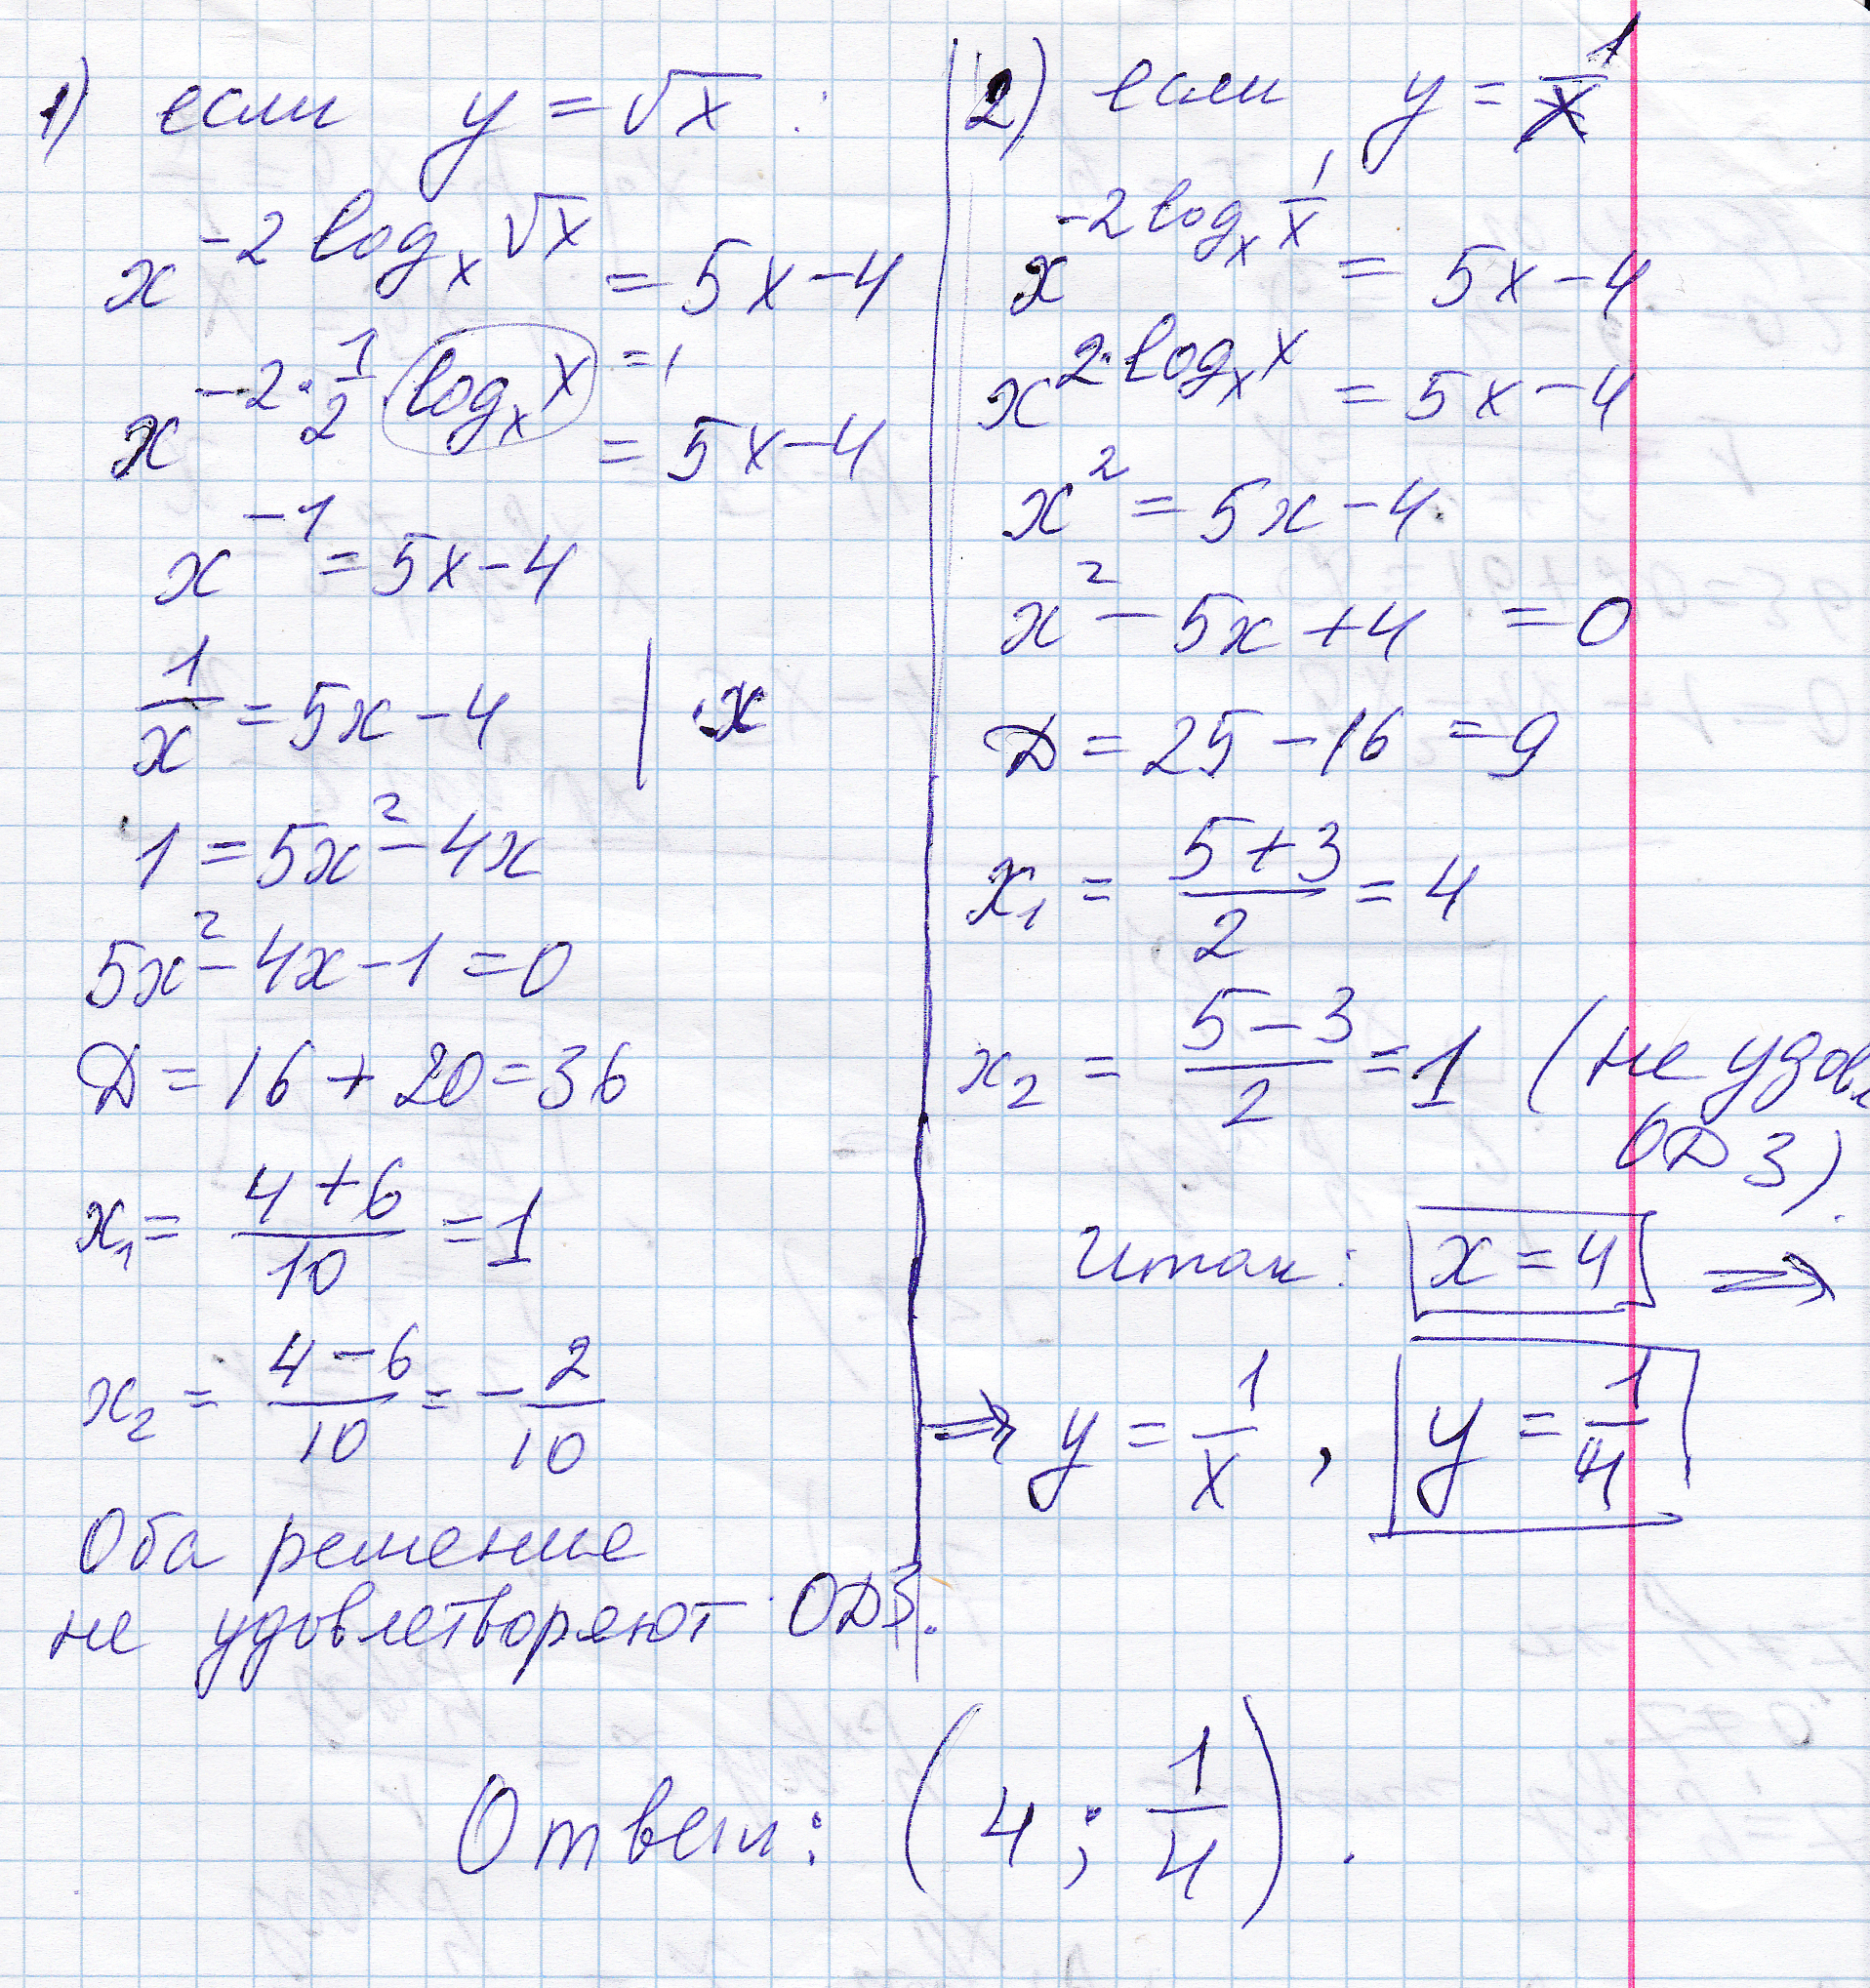 1) если y = √x :
x^(-2 log_x √x) = 5x - 4
x^(-2 · 1/2 log_x x) = 5x - 4 =1
x^(-1) = 5x - 4
1/x = 5x - 4 | · x
1 = 5x² - 4x
5x² - 4x - 1 = 0
Д = 16 + 20 = 36
x₁ = (4 + 6)/10 = 1
x₂ = (4 - 6)/10 = - 2/10
Оба решение
не удовлетворяют ОДЗ.
2) если y = 1/x
x^(-2 log_x 1/x) = 5x - 4
x^(2 · log_x x) = 5x - 4
x² = 5x - 4
x² - 5x + 4 = 0
Д = 25 - 16 = 9
x₁ = (5 + 3)/2 = 4
x₂ = (5 - 3)/2 = 1 (не удовл
ОДЗ).
Итак: x = 4 ⇒
⇒ y = 1/x , y = 1/4
Ответ: (4 ; 1/4) .